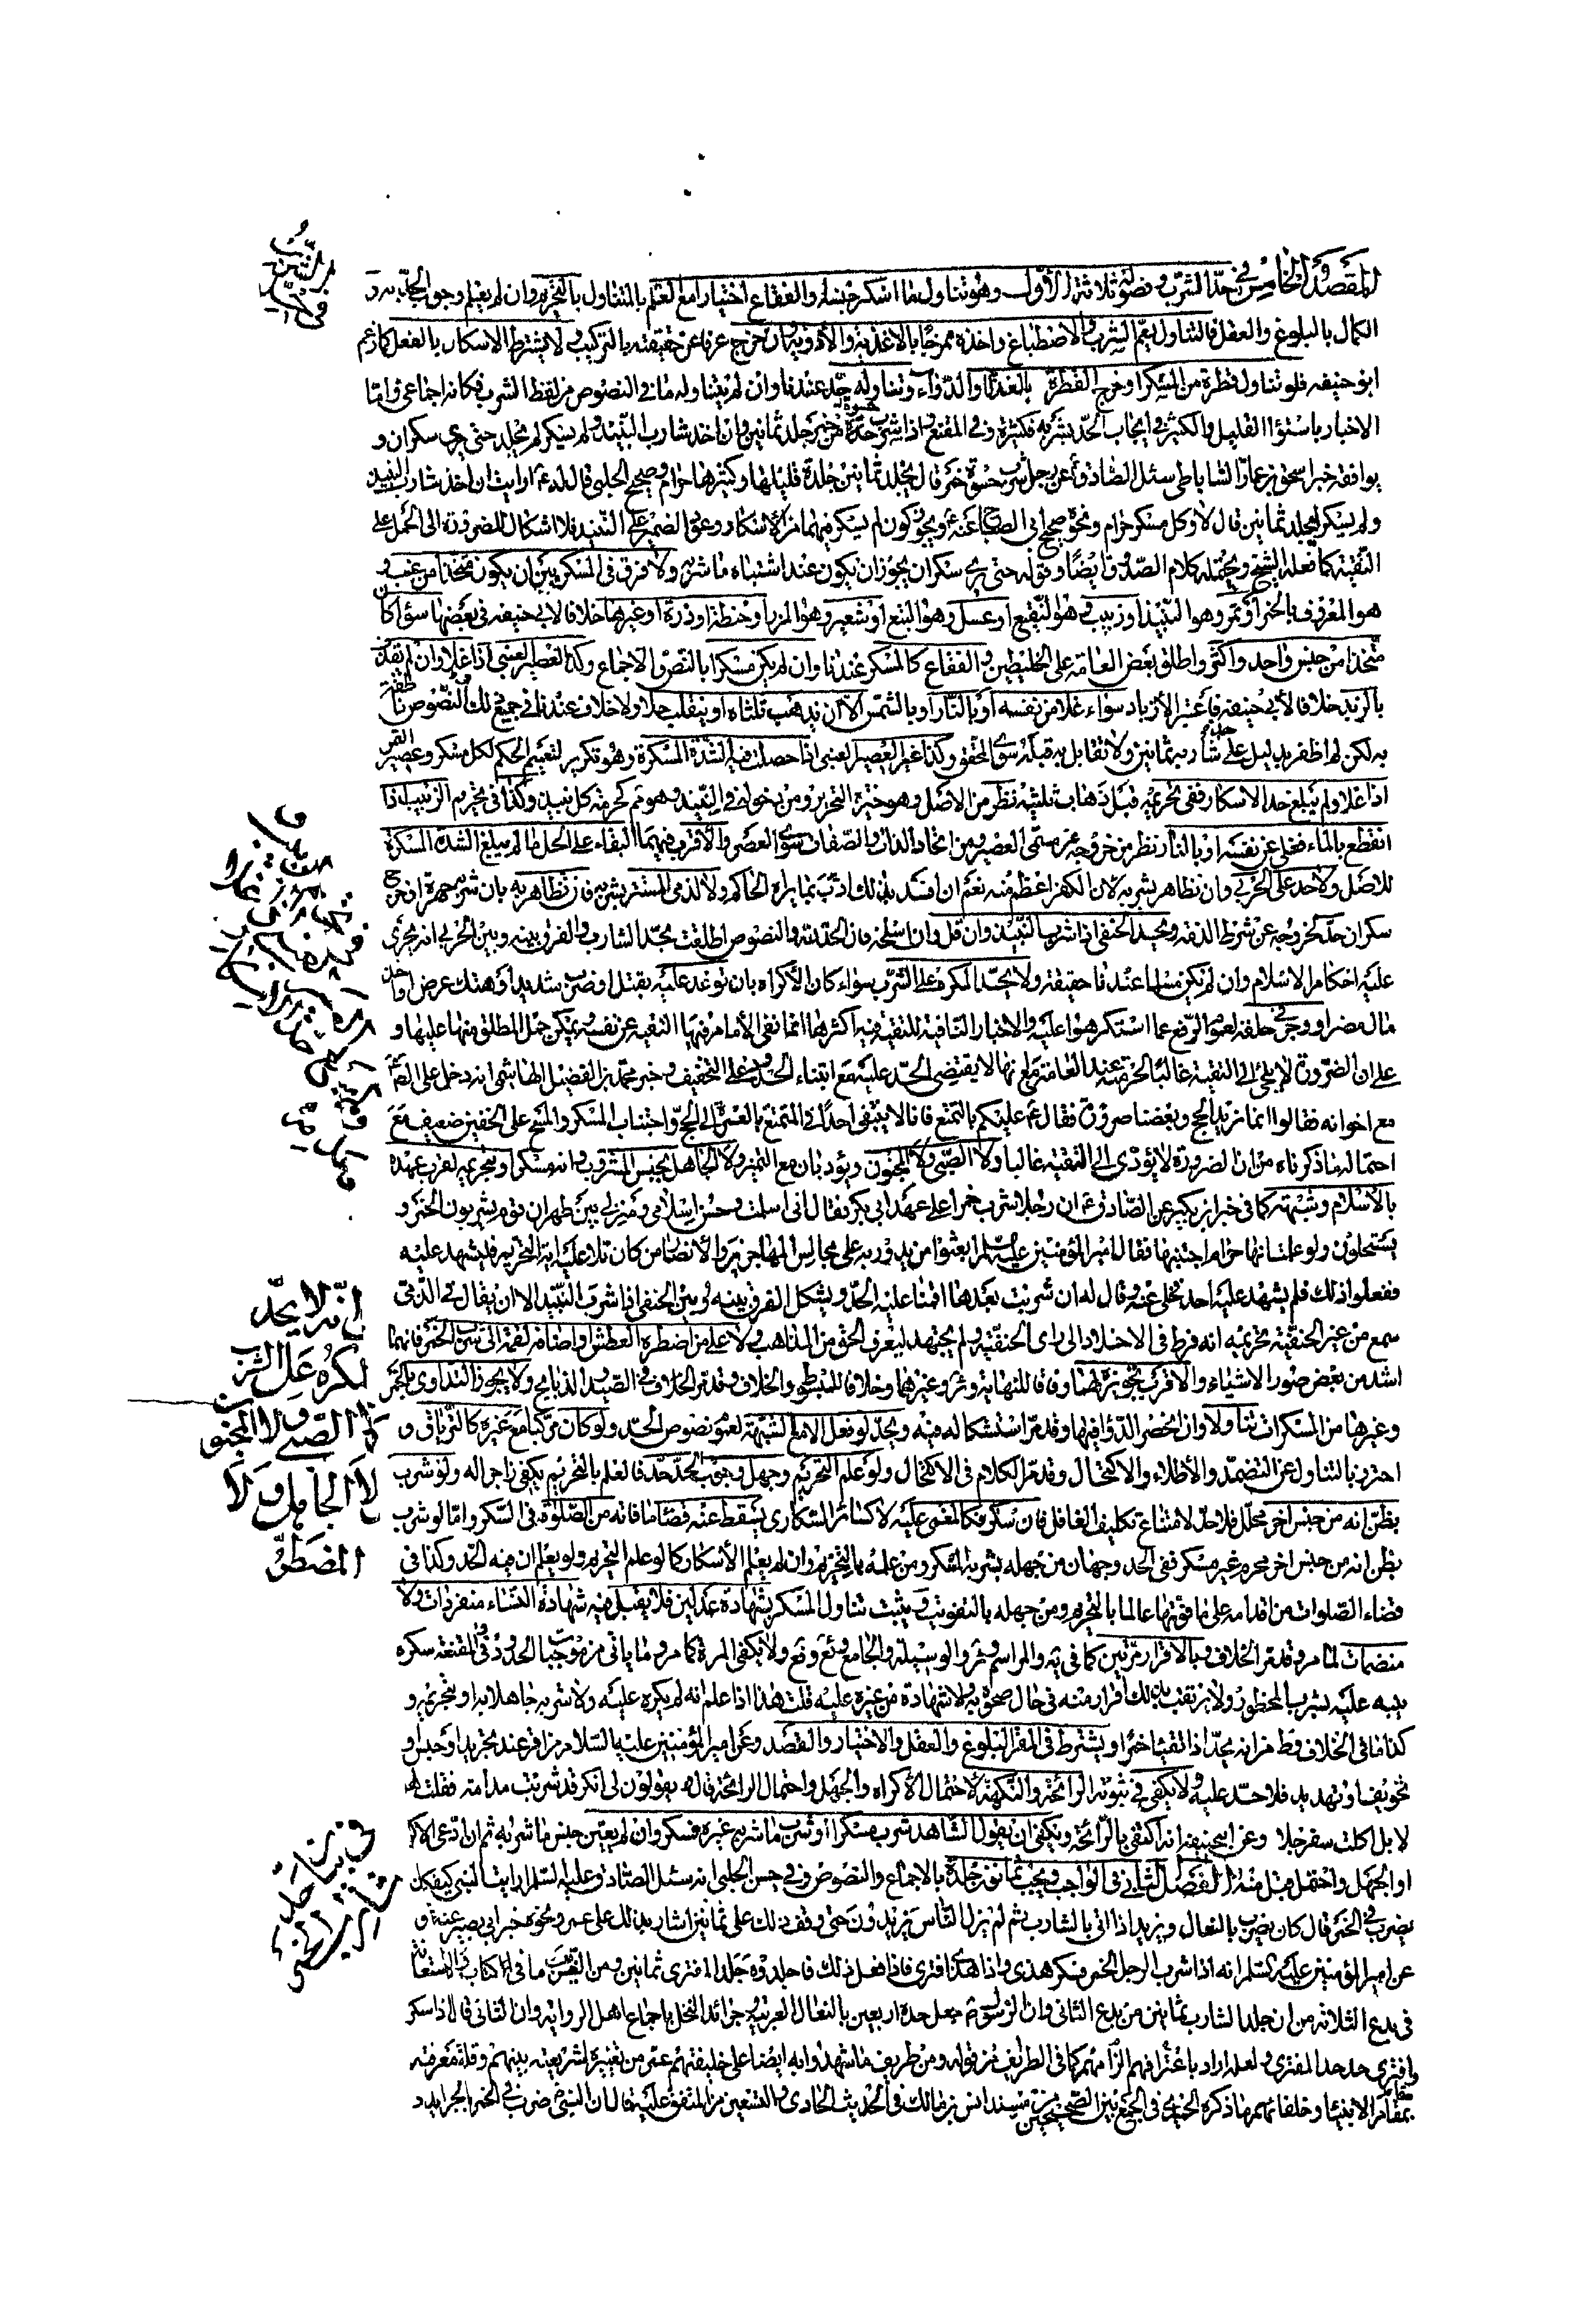 المقصد الخامس في حدّ الشرب وفصوله ثلاثة الأوّل وهو تناول ما اسكر جنسه والفقاع اختيارا مع العلم بالتناول بالتحريم وان لم يعلم وجوب الحد به و
الكمال بالبلوغ والعقل فالتناول يعمّ الشرب والاصطباغ واخذه ممزوجا بالاغذية والأدوية وان خرج عرفا عن حقيقته بالتركيب ولا يشترط الاسكار بالفعل كما زعم
ابو حنيفه فلو تناول قطرة من المسكر او مزج القطرة بالغذاء والدّواء وتناوله حدّ عندنا وان لم يتناوله ما في النصوص من لفظ الشرب فكانه اجماعي وامّا
الاخبار باستواء القليل والكثير في ايجاب الحدّ بشربه فكثيرة وفي المقنع اذا شرب حسوة من خمر جلد ثمانين وان اخذ شارب النبيذ ولم يسكر لم يجلد حتى يرى سكران و
يوافقه خبر اسحق بن عمار الساباطي سئل الصادق ع عن رجل شرب حسوة خمر قال يجلد ثمانين جلدة قليلها وكثيرها حرام وصحيح الحلبي قال له ع ارايت ان اخذ شارب النبيذ
ولم يسكر ايجلد ثمانين قال لا وكل مسكر حرام ونحوه صحيح ابي الصباح عنه ع ويجوز كون لم يسكر فيهما من الأسكار وعود الضمير على النبيذ فلا اشكال للضرورة الى الحمل على
التقية كما فعله الشيخ ويحتمله كلام الصدوق ايضا وقوله حتى يرى سكران يجوز ان يكون عند اشتباه ما شربه ولا فرق في المسكر بين ان يكون متخذا من عنب و
هو المعروف بالخمر او تمر وهو النبيذ او زبيب وهو النقيع او عسل وهو البتع او شعير وهو المزر او حنطة او ذرة او غيرها خلافا لابي حنيفه في بعضها سواء كان
متّخذا من جنس واحد او اكثر واطلق بعض العامة على الخليطين والفقاع كالمسكر عندنا وان لم يكن مسكرا بالنصّ والاجماع وكذا العصير العنبي اذا غلا وان لم يقذف
بالزبد خلافا لأبي حنيفه فاعتبر الازباد سواء غلا من نفسه او بالنار او بالشمس الا ان يذهب ثلثاه او ينقلب خلا ولا خلاف عندنا في جميع ذلك والنصوص ناطقة
به لكن لم اظفر بدليل على حد شاربه ثمانين ولا بقائل به قبله سوى المحقق وكذا غير العصير العنبي اذا حصلت فيه الشدّة المسكرة وهو تكرير لتعميم الحكم لكل مسكر وعصير التمر
اذا غلا ولم يبلغ حد الاسكار ففي تحريمه قبل ذهاب ثلثيه نظر من الاصل وهو خيرة التحرير ومن دخوله في النبيذ وهو ثم كحرمة كل نبيذ وكذا في تحريم الزبيب اذا
انقطع بالماء فغلى عن نفسه او بالنار نظر من خروجه عن مسمّى العصير ومن اتحاد الذات والصفات سوى العصر والأقرب فيهما البقاء على الحل ما لم يبلغ الشدة المسكرة
للاصل ولا حد على الحربي وان تظاهر بشربه لان الكفر اعظم منه نعم ان افسد بذلك ادّب بما يراه الحاكم ولا الذمي المستتر بشربه فان تظاهر به بان شربه جهرة او خرج
سكران حدّ لخروجه عن شرط الذمة ويحد الحنفي اذا شرب النبيذ وان قلّ وان استحله فان الحد لله والنصوص اطلقت بحدّ الشارب والفرق بينه وبين الحربي انه يجري
عليه احكام الاسلام وان لم يكن مسلما عندنا حقيقة ولا يحدّ المكره على الشرب سواء كان الأكراه بان توعد عليه بقتل او ضرب شديد او هتك عرض او اخذ
مال مضر او وجر في حلقه لعموم الرفع عما استكرهوا عليه والاخبار النافية للتقية فيه اكثرها انما نفى الامام فيها التقية عن نفسه فيمكن حمل المطلق منها عليها و
على ان الضرورة لا يلجئ الى التقية غالبا لحرمته عند العامة مع انها لا يقتضي الحدّ عليه مع ابتناء الحدود على التخفيف وخبر محمد بن الفضيل الهاشمي انه دخل على الصادق ع
مع اخوانه فقالوا انما نريد الحج وبعضنا صرورة فقال ع عليكم بالتمتع فانا لا نتّقي احدا في التمتع بالعمرة الى الحج واجتناب المسكر والمسح على الخفين ضعيف مع
احتماله ما ذكرناه من ان الضرورة لا يؤدي الى التقية غالبا ولا الصّبي ولا المجنون ويؤدبان مع التميز ولا الجاهل بجنس المشروب وانه مسكر او بتحريمه لقرب عهده
بالأسلام وشبهته كما في خبر ابن بكير عن الصادق ع ان رجلا شرب خمرا على عهد ابي بكر فقال اني اسلمت وحسن اسلامي ومنزلي بين ظهران قوم يشربون الخمر و
يستحلون ولو علمت انها حرام اجتنبتها فقال امير المؤمنين عليه السلم ابعثوا من يدور به على مجالس المهاجرين والأنصار من كان تلا عليه اية التحريم فليشهد عليه
ففعلوا ذلك فلم يشهد عليه احد فخلى عنه وقال له ان شربت بعدها اقمنا عليه الحدّ ويشكل الفرق بينه وبين الحنفي اذا شرب النبيذ الا ان يقال في الذي
سمع من غير الحنفية تحريمه انه فرط في الاخلاد الى راى الحنفية ولم يجتهد ليعرف الحق من المذاهب ولا على من اضطره العطش او اضافة لقمة الى شرب الخمر فانهما
اشد من بعض صور الاشياء والاقرب تجويزه لهما وفاقا للنهاية وئر وغيرهما وخلافا للمبسوط والخلاف وقد مر الخلاف في الصيد والذبايح ولا يجوز التداوي بالخمر
وغيرها من المسكرات تناولا وان انحصر الدّواء فيها وقد مرّ استشكاله فيه ويحدّ لو فعل الا مع الشبهة لعموم نصوص الحدّ ولو كان مركبا مع غيره كالترياق و
احترز بالتناول عن التضمّد والأطلاء والاكتحال وقد مر الكلام في الاكتحال ولو علم التحريم وجهل وجوب الحدّ حدّ فالعلم بالتحريم يكفي زاجرا له ولو شرب
بظنّ انه من جنس اخر محلّل فلا حدّ لامتناع تكليف الغافل فان سكر فكالمغمى عليه لا كسائر السكارى يسقط عنه قضاء ما فاته من الصلوة في السكر وامّا لو شرب
بظن انه من جنس اخر محرم غير مسكر ففي الحد وجهان من جهله بشربه المسكر ومن علمه بالتحريم وان لم يعلم الأسكار كما لو علم التحريم ولم يعلم ان فيه الحدّ وكذا في
قضاء الصلوات من اقدامه على ما فوّتها عالما بالتحريم ومن جهله بالتفويت ويثبت تناول المسكر بشهادة عدلين فلا يقبل فيه شهادة النساء منفردات ولا
منضمات لما مر وقد مر الخلاف وبالاقرار مرّتين كما في يه والمراسم وئر والوسيلة والجامع وئع وفع ولا يكفي المرة كما مر وما ياتي من موجبات الحدود وفي المقنعة سكره
بينة عليه بشرب المحظور ولا يرتقب بذلك اقرار منه في حال صحوه به ولا شهادة من غيره عليه قلت هذا اذا علم انه لم يكره عليه ولا شربه جاهلا به او بتحريمه و
كذا ما في الخلاف وط من انه يحدّ اذا تقيئا خمرا ويشترط في المقر البلوغ والعقل والاختيار والقصد وعن امير المؤمنين عليه السّلام من اقر عند تجريد او حبس او
تخويف او تهديد فلا حدّ عليه ولا يكفي في ثبوته الرائحة والنكهة لاحتمال الأكراه والجهل واحتمال الرائحة قال يقولون لي انكه قد شربت مدامة فقلت لهم
لا بل اكلت سفرجلا وعن ابي حنيفه انه اكتفى بالرّائحة ويكفي ان يقول الشاهد شرب مسكرا او شرب ما شربه غيره فسكر وان لم يعيّن جنس ما شربه ثم ان ادّعى الاكراه
او الجهل واحتمل قبل منه الفصل الثاني في الواجب ويجب ثمانون جلدة بالاجماع والنصوص وفي حسن الحلبي انه سئل الصادق عليه السّلم ارايت النبي كيف كان
يضرب في الخمر قال كان يضرب بالنعال ويزيد اذا اتى بالشارب ثم لم يزل الناس يزيدون حتى وقف ذلك على ثمانين اشار بذلك على عمر ونحوه خبر ابي بصير عنه ع و
عن امير المؤمنين عليه السّلم انه اذا شرب الرجل الخمر فسكر هذى واذا هذى افترى فاذا فعل ذلك فاجلدوه جلد المفتري ثمانين ومن الغريب ما في الكتاب والاستغاثة
في بدع الثلاثة من ان جلد الشارب ثمانين من بدع الثاني وان الرسول ص جعل حده اربعين بالنعال العربية وجرائد النخل باجماع اهل الرواية وان الثاني قال اذا سكر
وافترى حد حد المفتري ولعله اراد باعترافهم الزامهم كما في الطرائف من قوله ومن طريف ما شهدوا به ايضا على خليفتهم عمر من تغييره لشريعة نبيهم وقلة معرفته
بمقام الانبياء وخلفائهم ما ذكره الحميدي في الجمع بين الصحيحين من مسند انس بن مالك في الحديث الحادي والتسعين من المتفق عليه قال ان النبي ص ضرب في الخمر بالجرايد و
انّه لا يحدّ
المكره على الشرب
ولا الصّبي ولا المجنون
ولا الجاهل ولا
المضطرّ
في بيان حد
شارب الخمر